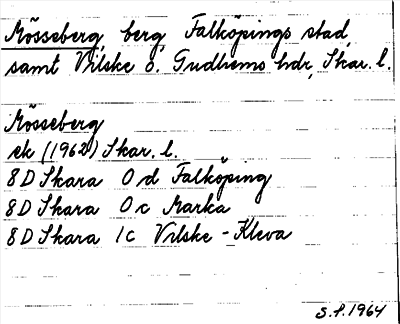 Mösseberg, berg, Falköpings stad,
samt Vilske o. Gudhems hdr, Skar. l.
Mösseberg
ek (1962) Skar. l.
8D Skara 0d Falköping
8D Skara 0c Marka
8D Skara 1c Vilske-Kleva
S.F. 1964